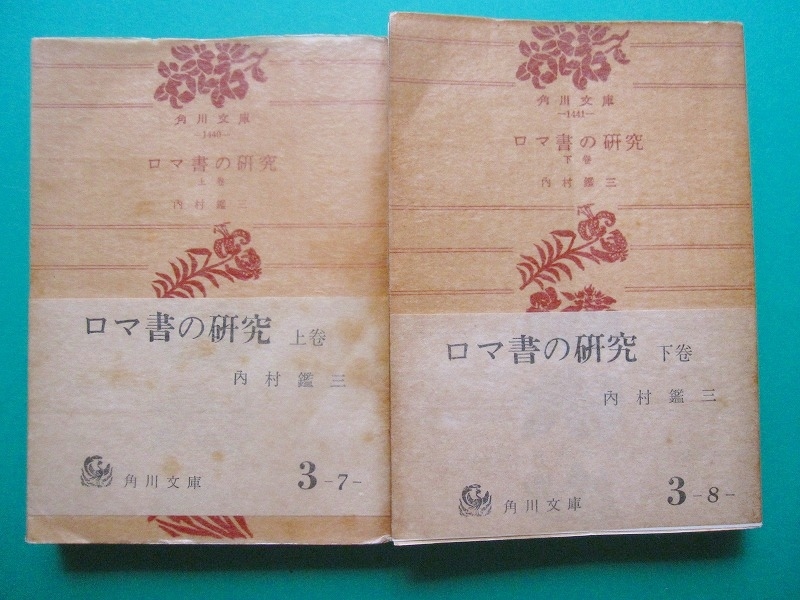 角川文庫
―1440―
ロマ書の硏究
上卷
內村鑑三
ロマ書の硏究 上卷
內村鑑三
角川文庫
3-7-
角川文庫
―1441―
ロマ書の硏究
下卷
內村鑑三
ロマ書の硏究 下卷
內村鑑三
角川文庫
3-8-